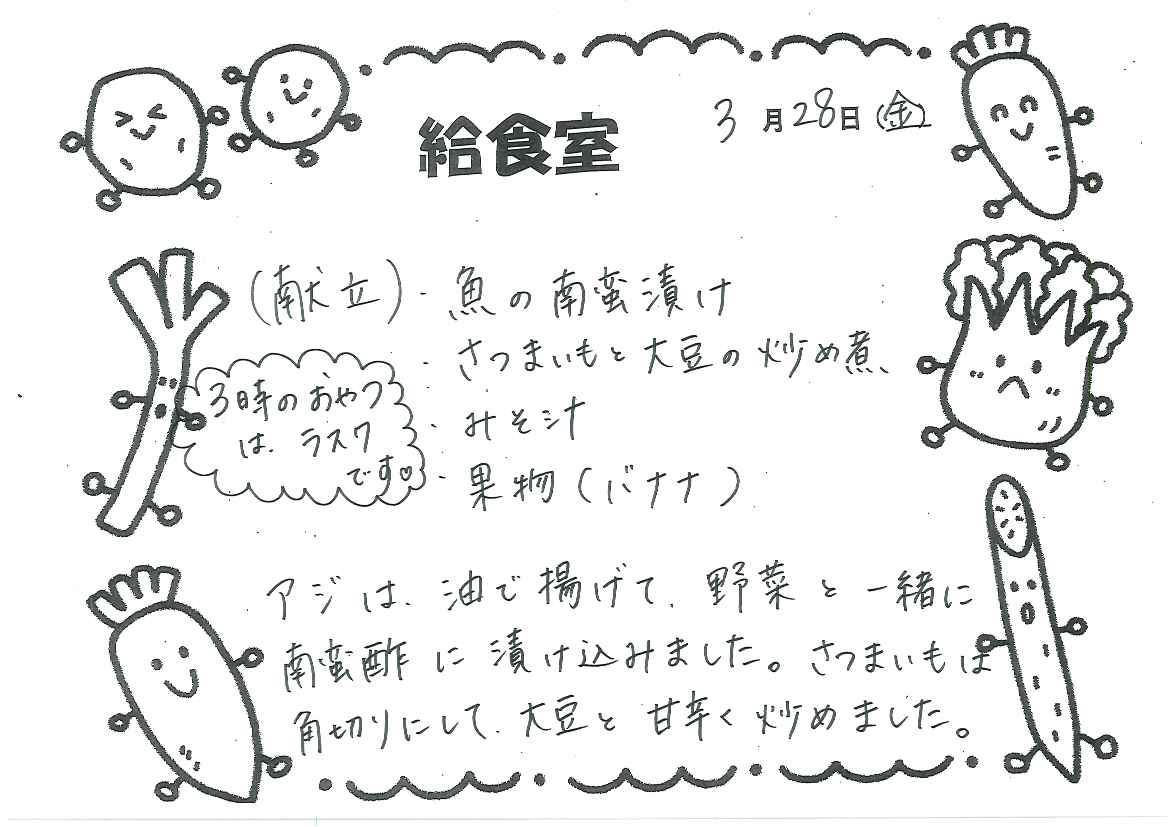 給食室
3月28日(金)
(献立)・魚の南蛮漬け
・さつまいもと大豆の炒め煮
・みそ汁
・果物(バナナ)
3時のおやつ
は、ラスク
です♡
アジは、油で揚げて、野菜と一緒に
南蛮酢に漬け込みました。さつまいもは
角切りにして、大豆と甘辛く炒めました。